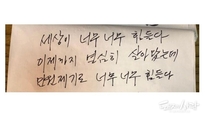 세상이 너무 너무 힘든다
이제까지 열심히 살아 왔는데
너무 너무 힘든다